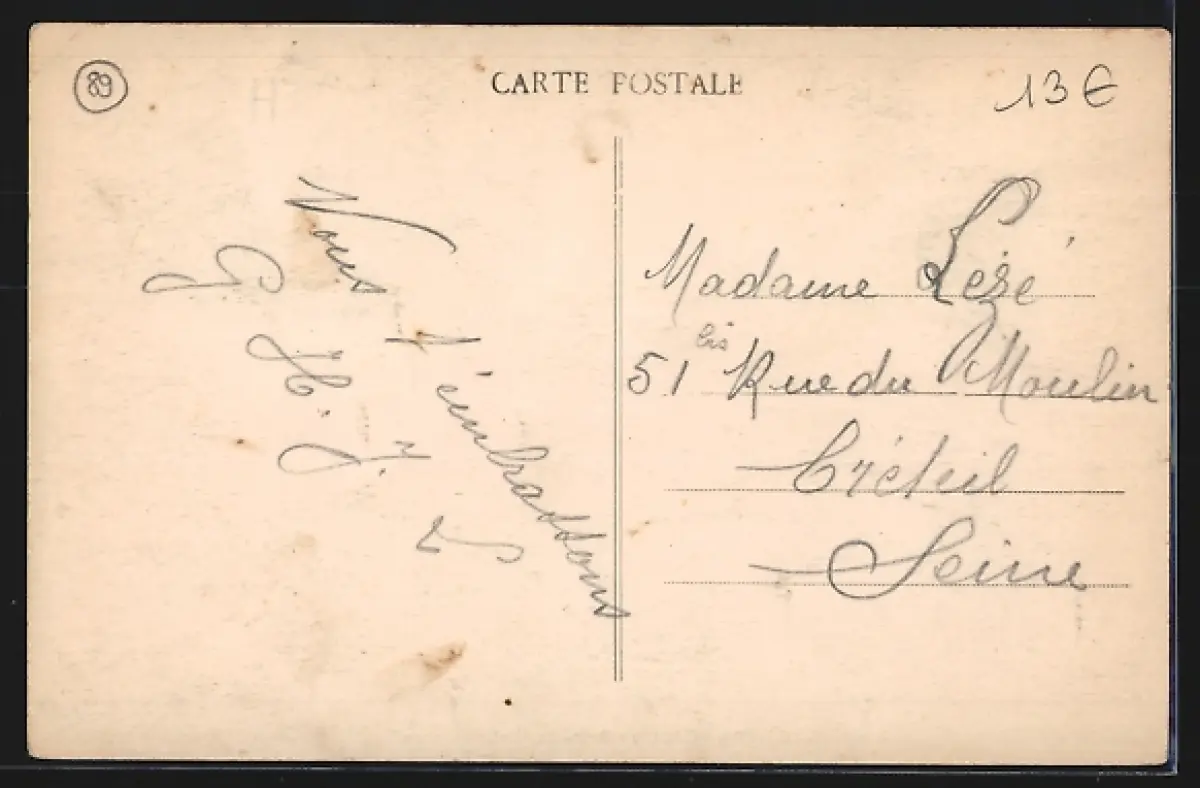 89
CARTE POSTALE
13€
Nous t'embrassons
G. H. J.
Madame Lézé
51 bis Rue du Moulin
Créteil
Seine